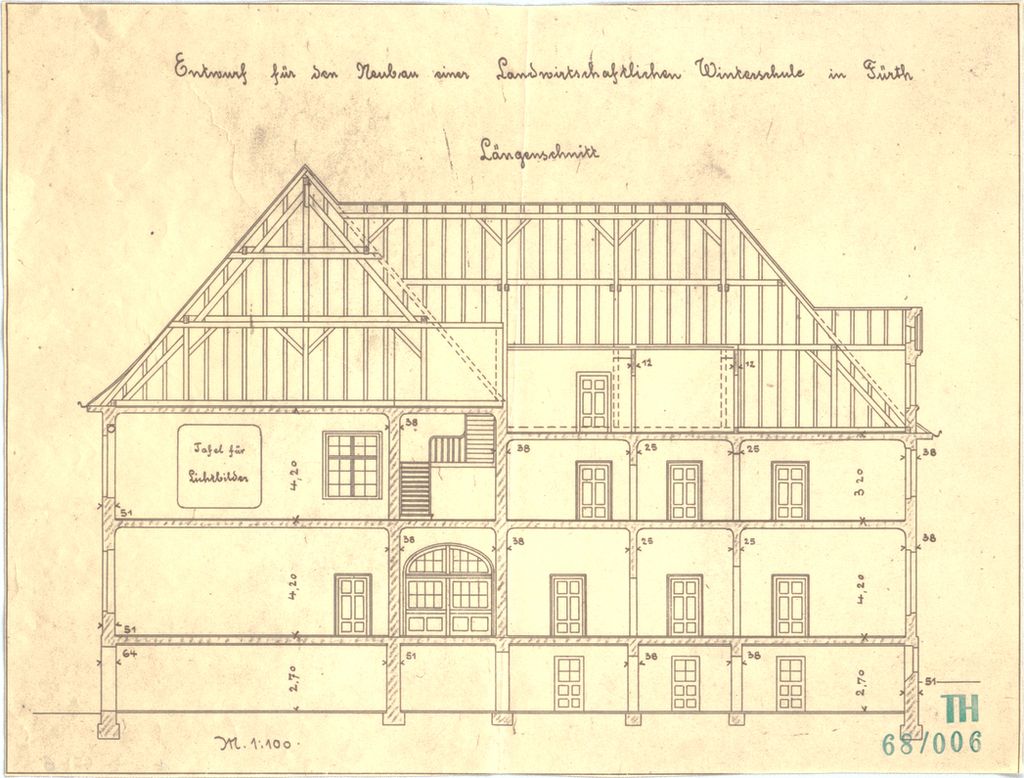 Entwurf für den Neubau einer Landwirtschaftlichen Winterschule in Fürth
Längenschnitt
12
12
38
38
25
25
38
Tafel für
Lichtbilder
4,20
3,20
51
38
38
25
25
38
4,20
4,20
51
64
51
38
38
2,70
2,70
51
M. 1:100.
TH
68/006